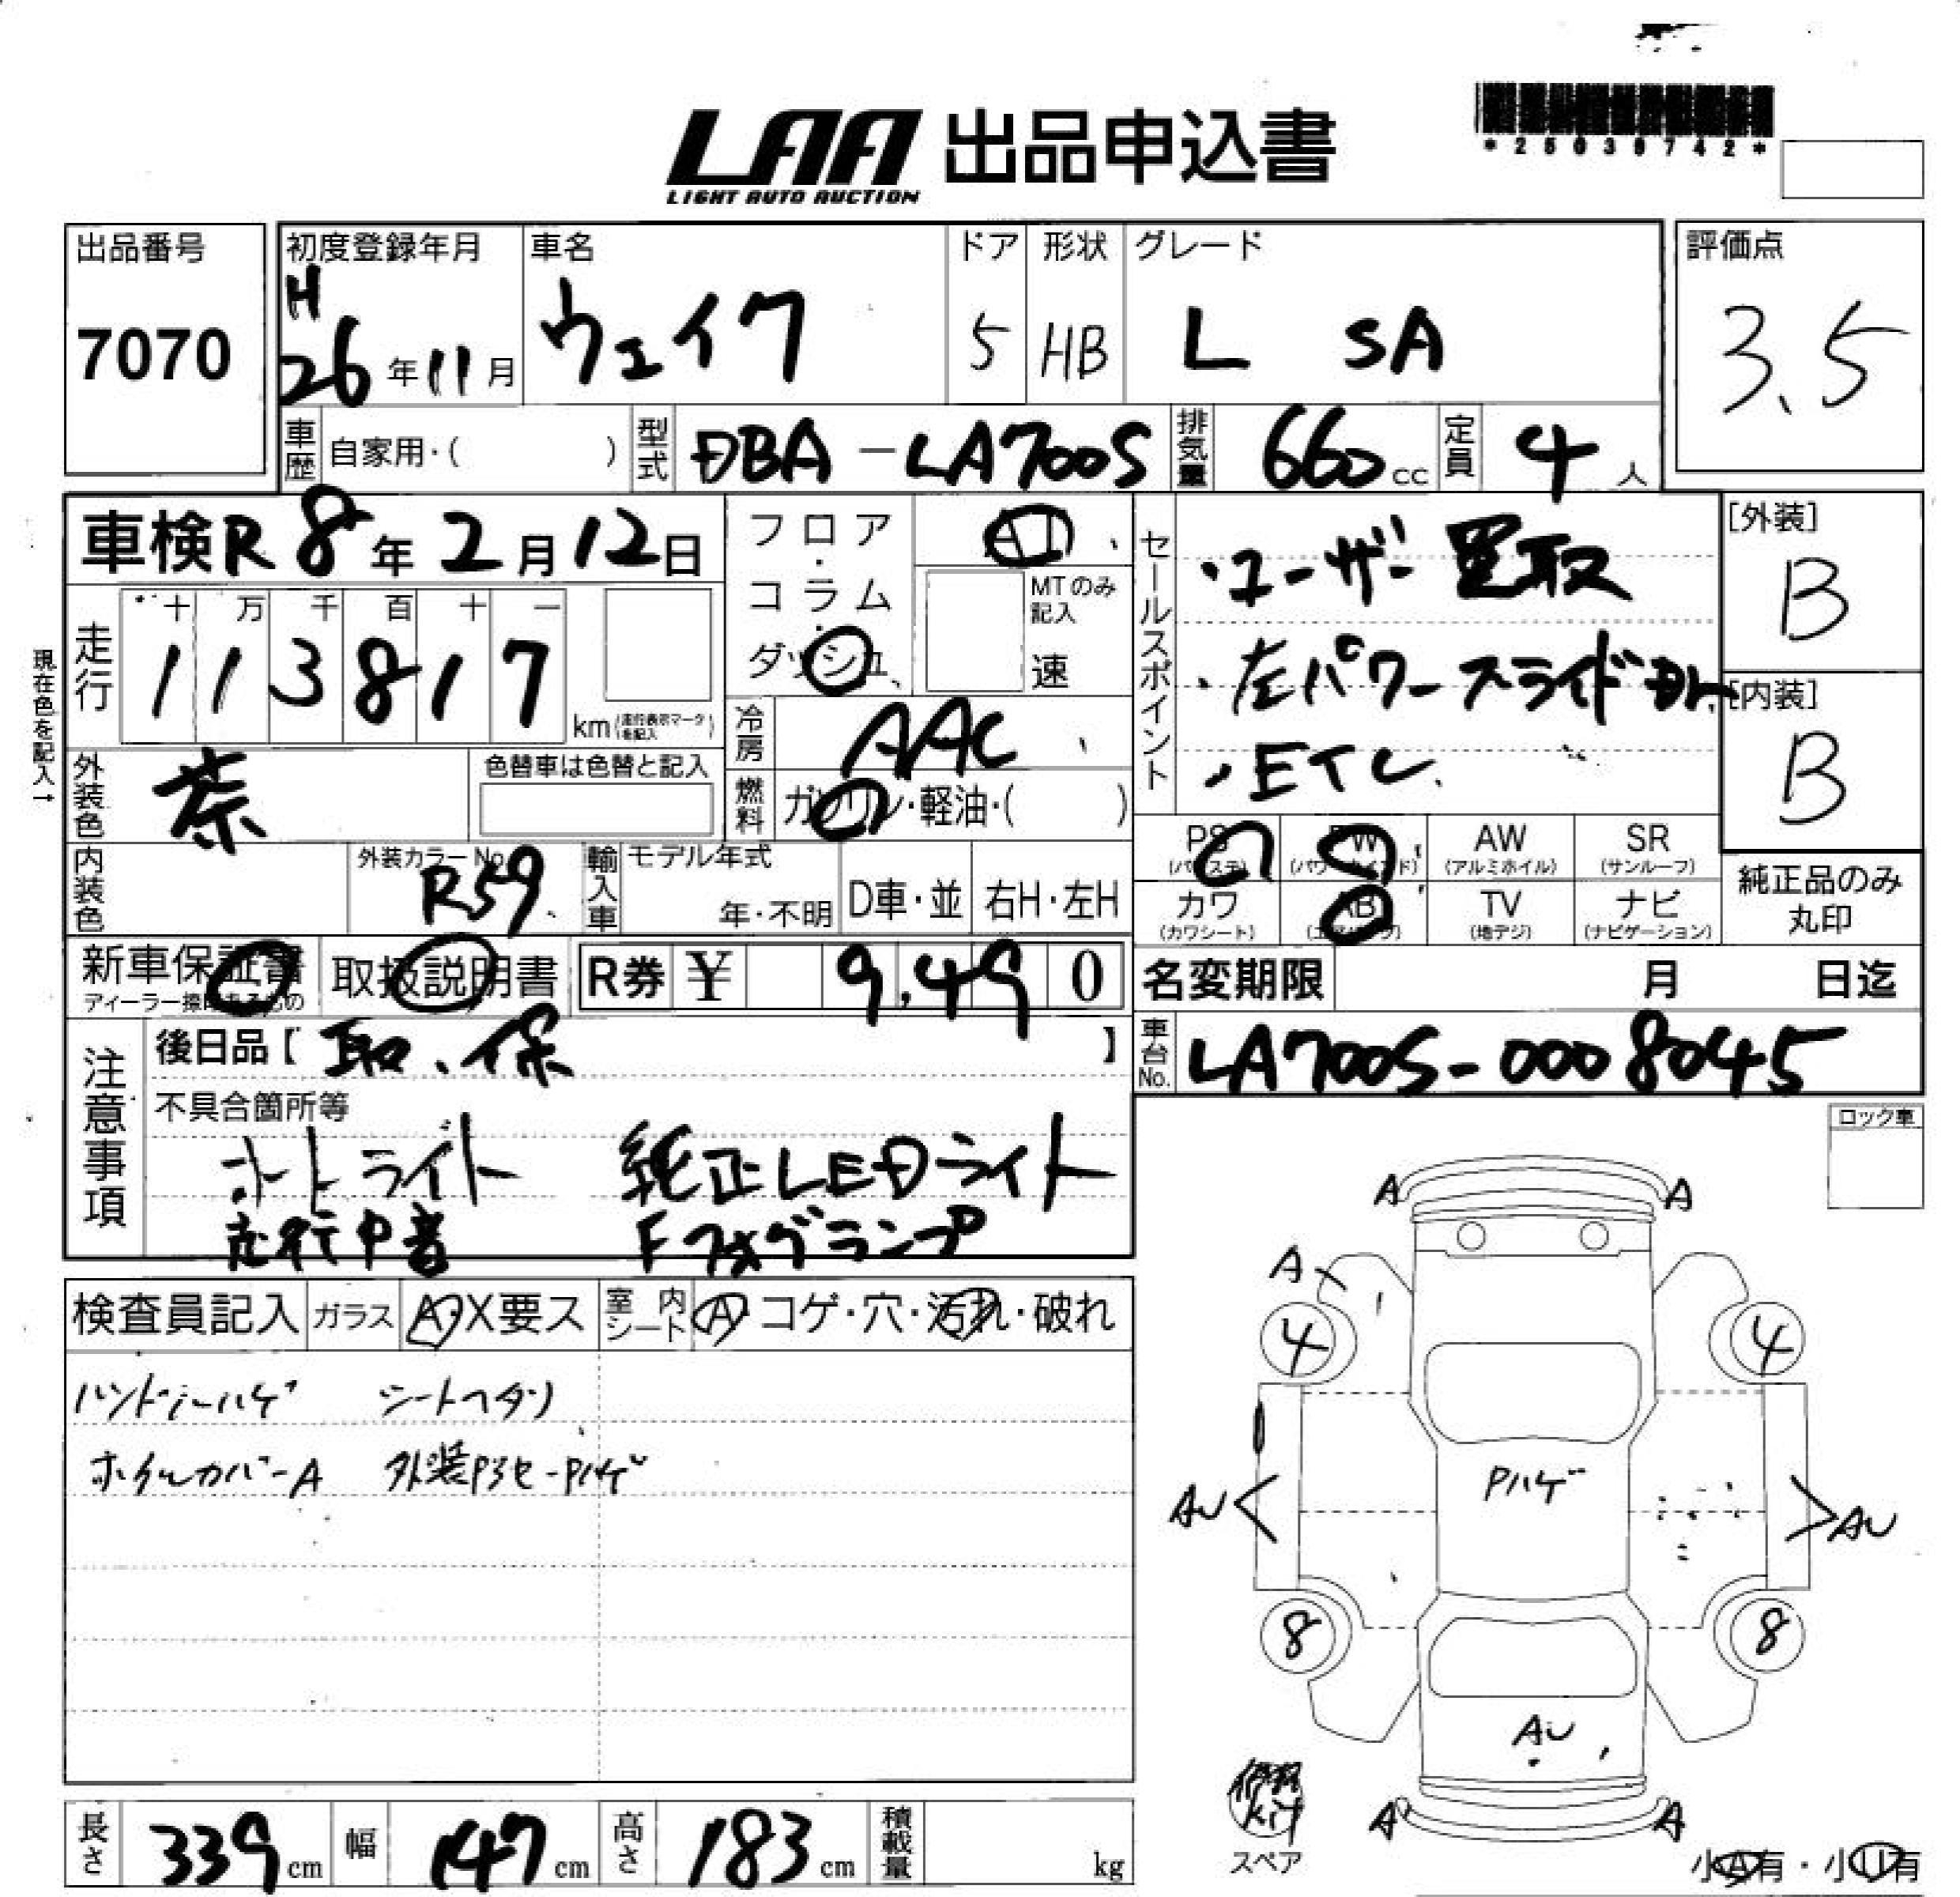 LAA 出品申込書
LIGHT AUTO AUCTION
*25039742*
出品番号
7070
初度登録年月
H
26年11月
車名
ウェイク
ドア
5
形状
HB
グレード
L SA
評価点
3.5
車歴 自家用・( )
型式 DBA-LA700S
排気量 660cc
定員 4人
車検R8年2月12日
フロア・コラム・ダッシュ
AT
MTのみ記入
速
セールスポイント
・ユーザー買取
・左パワースライドDr.
・ETC
[外装]
B
[内装]
B
現在色を記入→
走行
十万千百十一
113817
km(走行表示マークを記入)
冷房 AAC
外装色 茶
色替車は色替と記入
燃料 ガソリン・軽油・( )
PS
(パワステ)
PW
(パワーウインド)
AW
(アルミホイル)
SR
(サンルーフ)
カワ
(カワシート)
AB
(エアバッグ)
TV
(地デジ)
ナビ
(ナビゲーション)
純正品のみ丸印
内装色
外装カラーNo.
R59
輸入車
モデル年式
年・不明
D車・並
右H・左H
新車保証書
取扱説明書
R券 ¥ 9,490
名変期限 月 日迄
車台No. LA700S-0008045
注意事項
後日品【取、保】
不具合箇所等
オートライト 純正LEDライト
走行中音 Fフォグランプ
ロック車
検査員記入 ガラス A・X要ス
室内シート A・コゲ・穴・汚れ・破れ
ハンドルハゲ シートヘタリ
ホイルカバーA 外装PヨセーPハゲ
A A
A
4 4
AU Pハゲ AU
8 8
AU
修理kit
スペア
A A
小A有・小U有
長さ 339cm
幅 147cm
高さ 183cm
積載量 kg